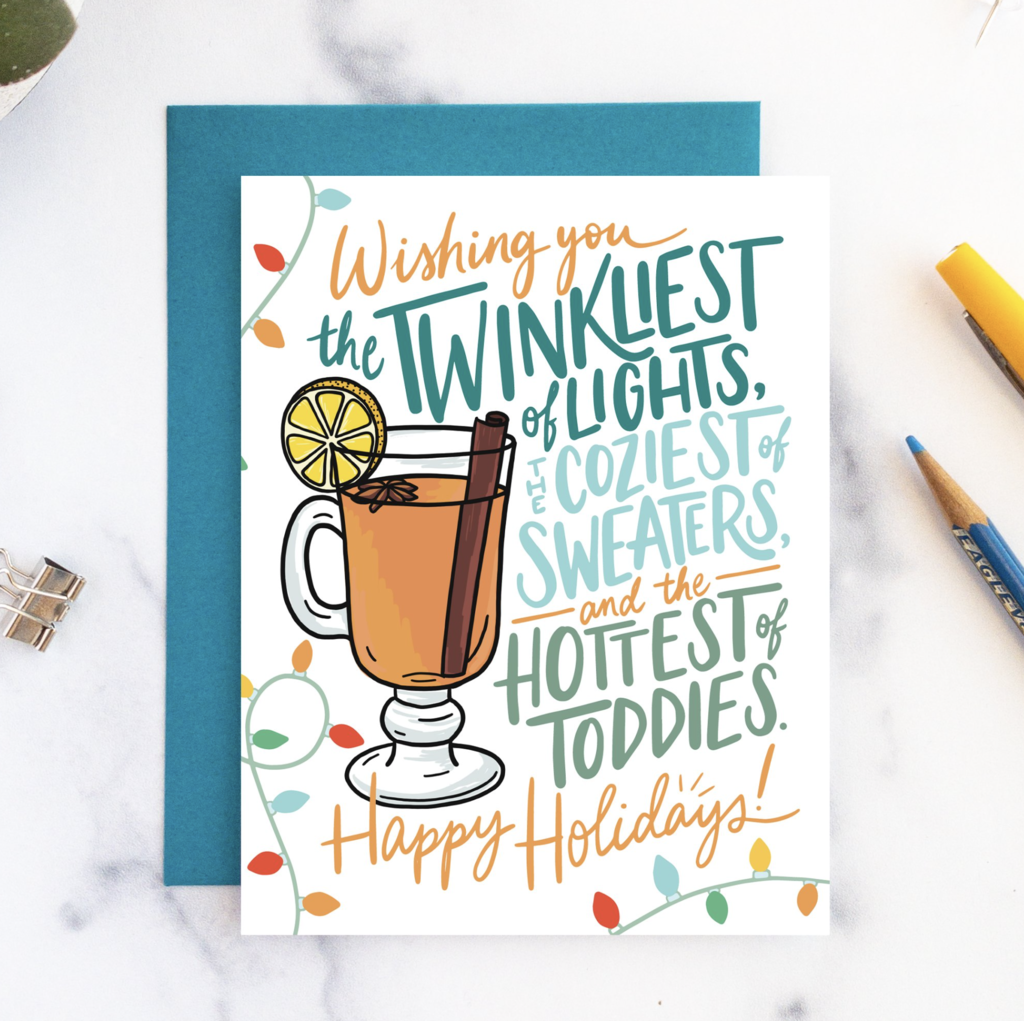 Wishing you
the TWINKLIEST
of LIGHTS,
THE COZIEST of
SWEATERS,
and the
HOTTEST of
TODDIES.
Happy Holidays!